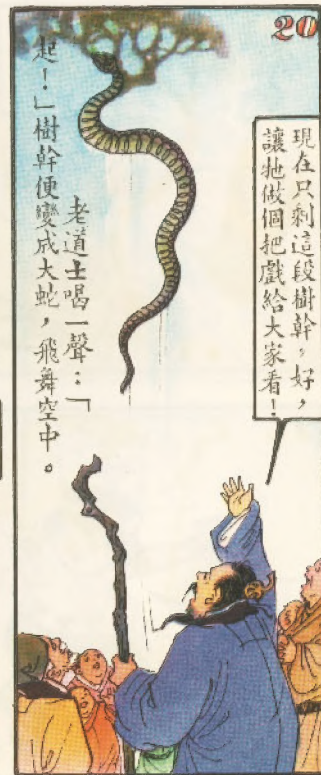 20
現在只剩這段樹幹，好，
讓牠做個把戲給大家看！
老道士喝一聲：「
起！」樹幹便變成大蛇，飛舞空中。